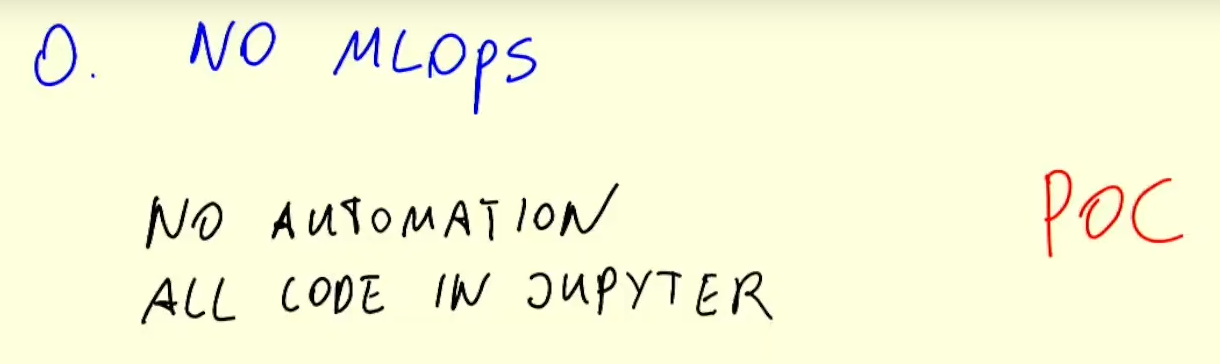 0. NO MLOps
NO AUTOMATION
POC
ALL CODE IN JUPYTER